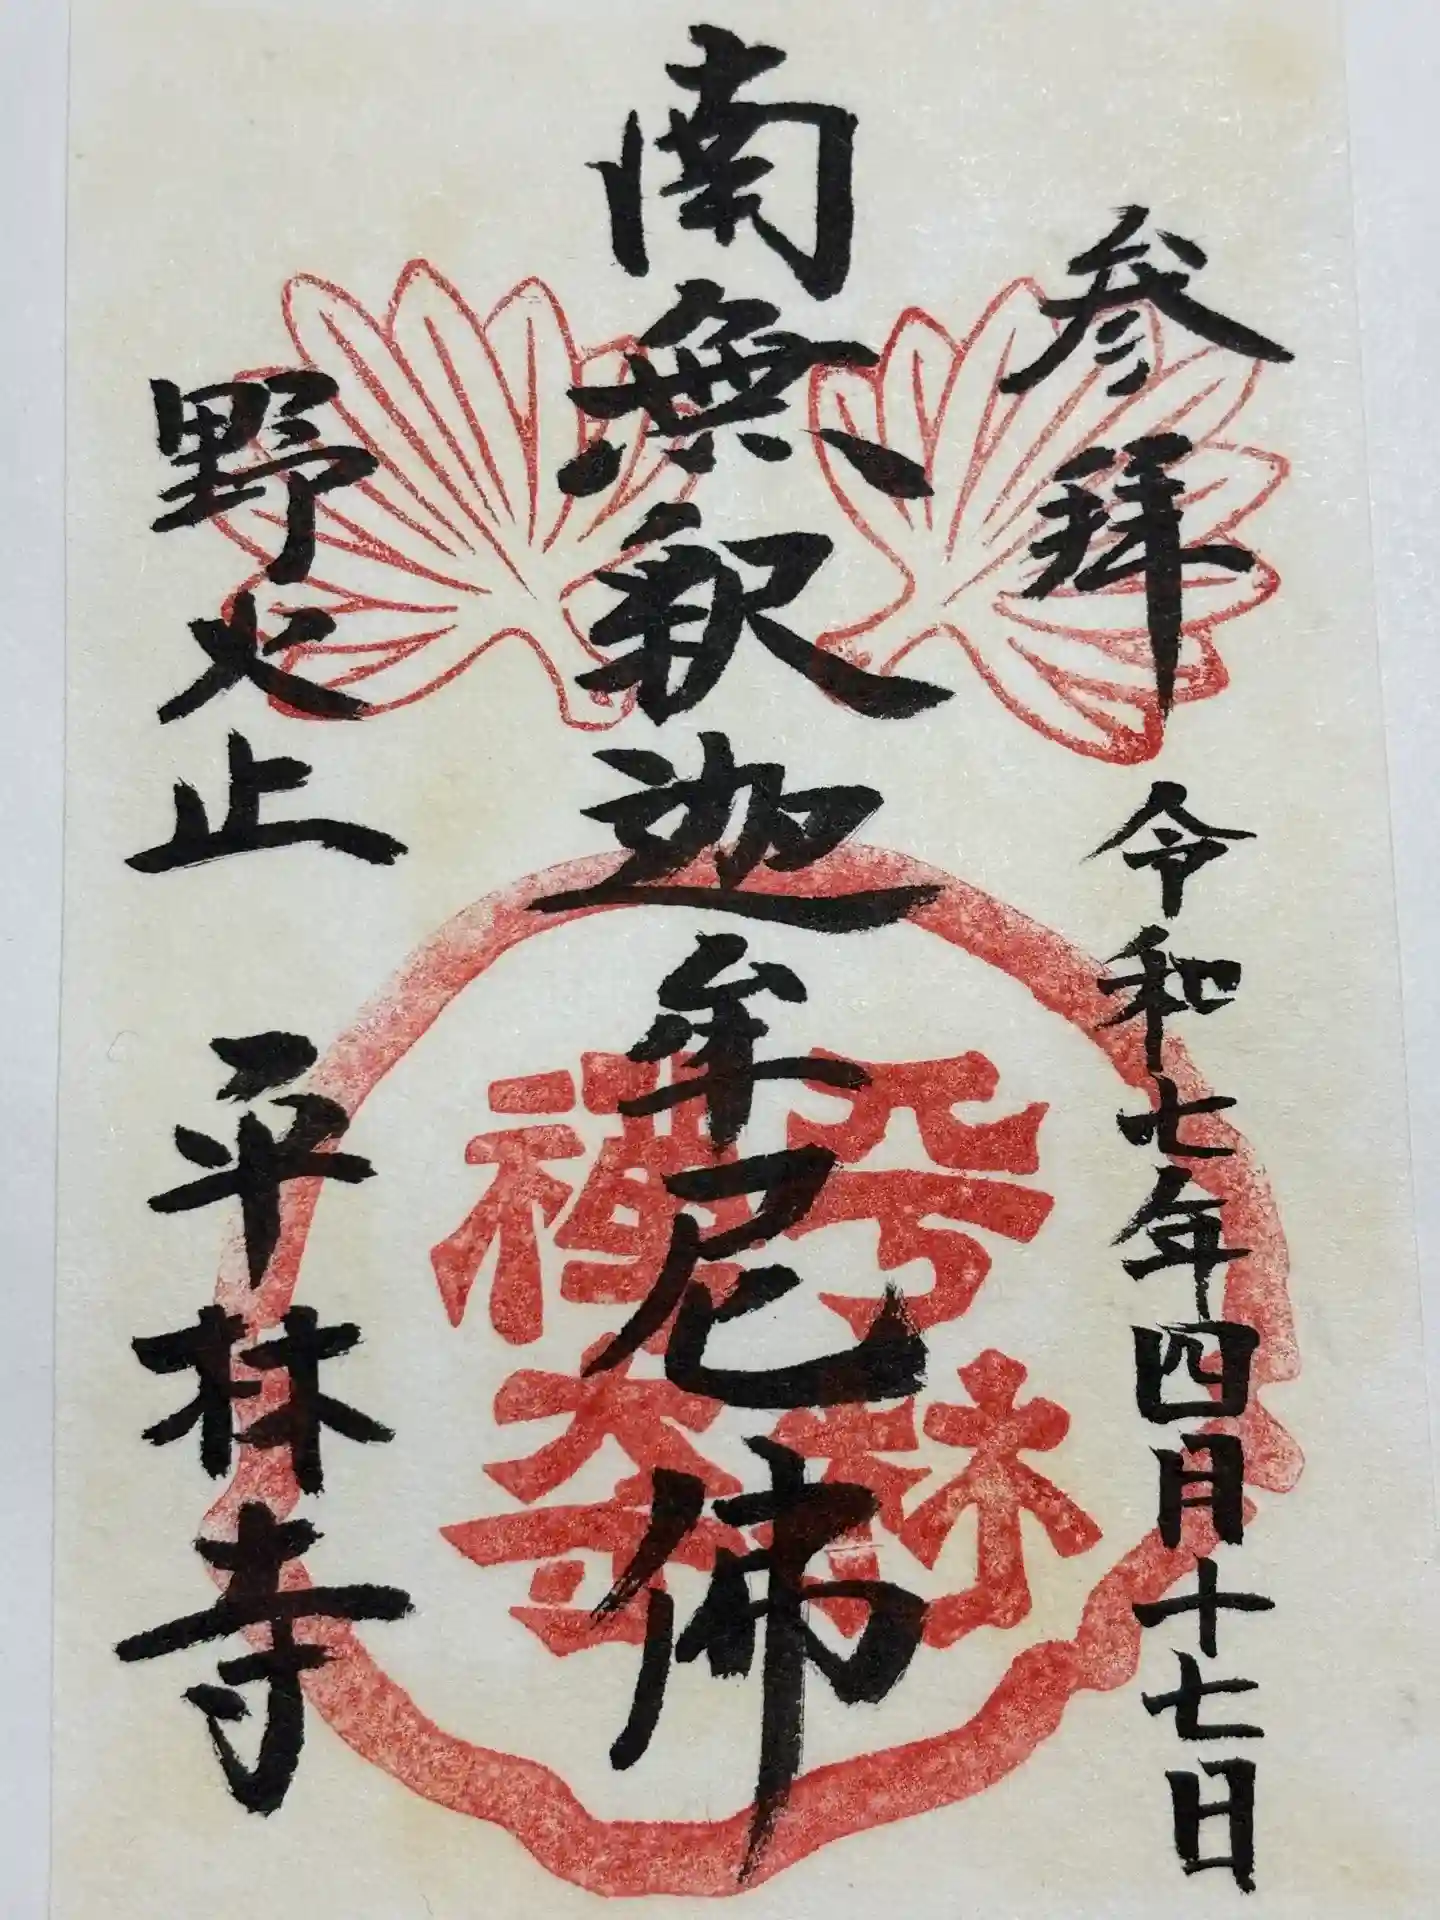 参拜 令和七年四月十七日
南無釈迦牟尼佛
野火止 平林寺
平林
禅寺